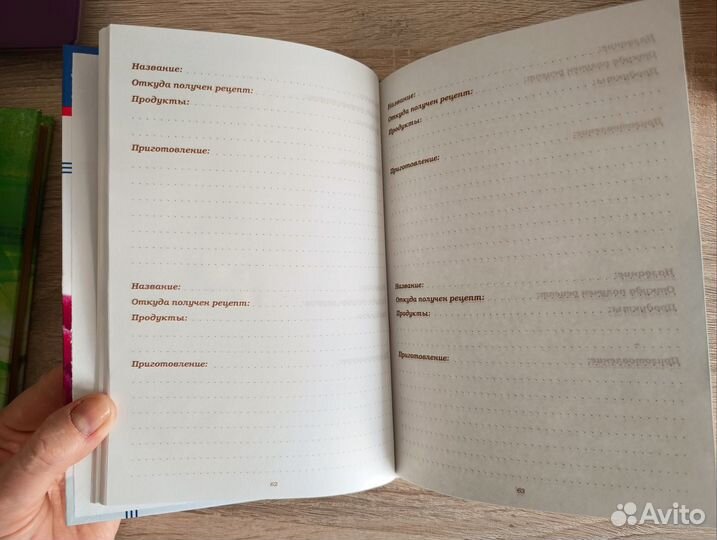 Название:
Откуда получен рецепт:
Продукты:
Приготовление:
Название:
Откуда получен рецепт:
Продукты:
Приготовление:
62
Название:
Откуда получен рецепт:
Продукты:
Приготовление:
Название:
Откуда получен рецепт:
Продукты:
Приготовление:
63
Avito